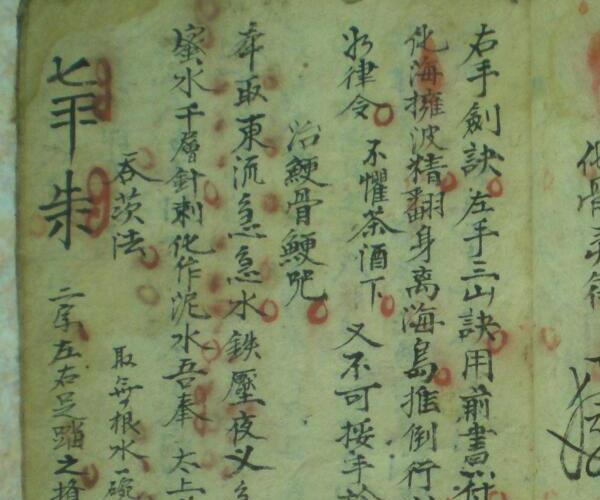 右手劍訣左手三山訣用前書符
化海擁波精翻身离海島推倒行
水律令 不懼茶酒下 又不可接手於
治鯁骨鯁咒
奉取東流急急水鉄壓夜义
蜜水千層針刺化作泥水吾奉太上
吞茨法 取無根水一碗
二字左右足踏之
化骨灵符